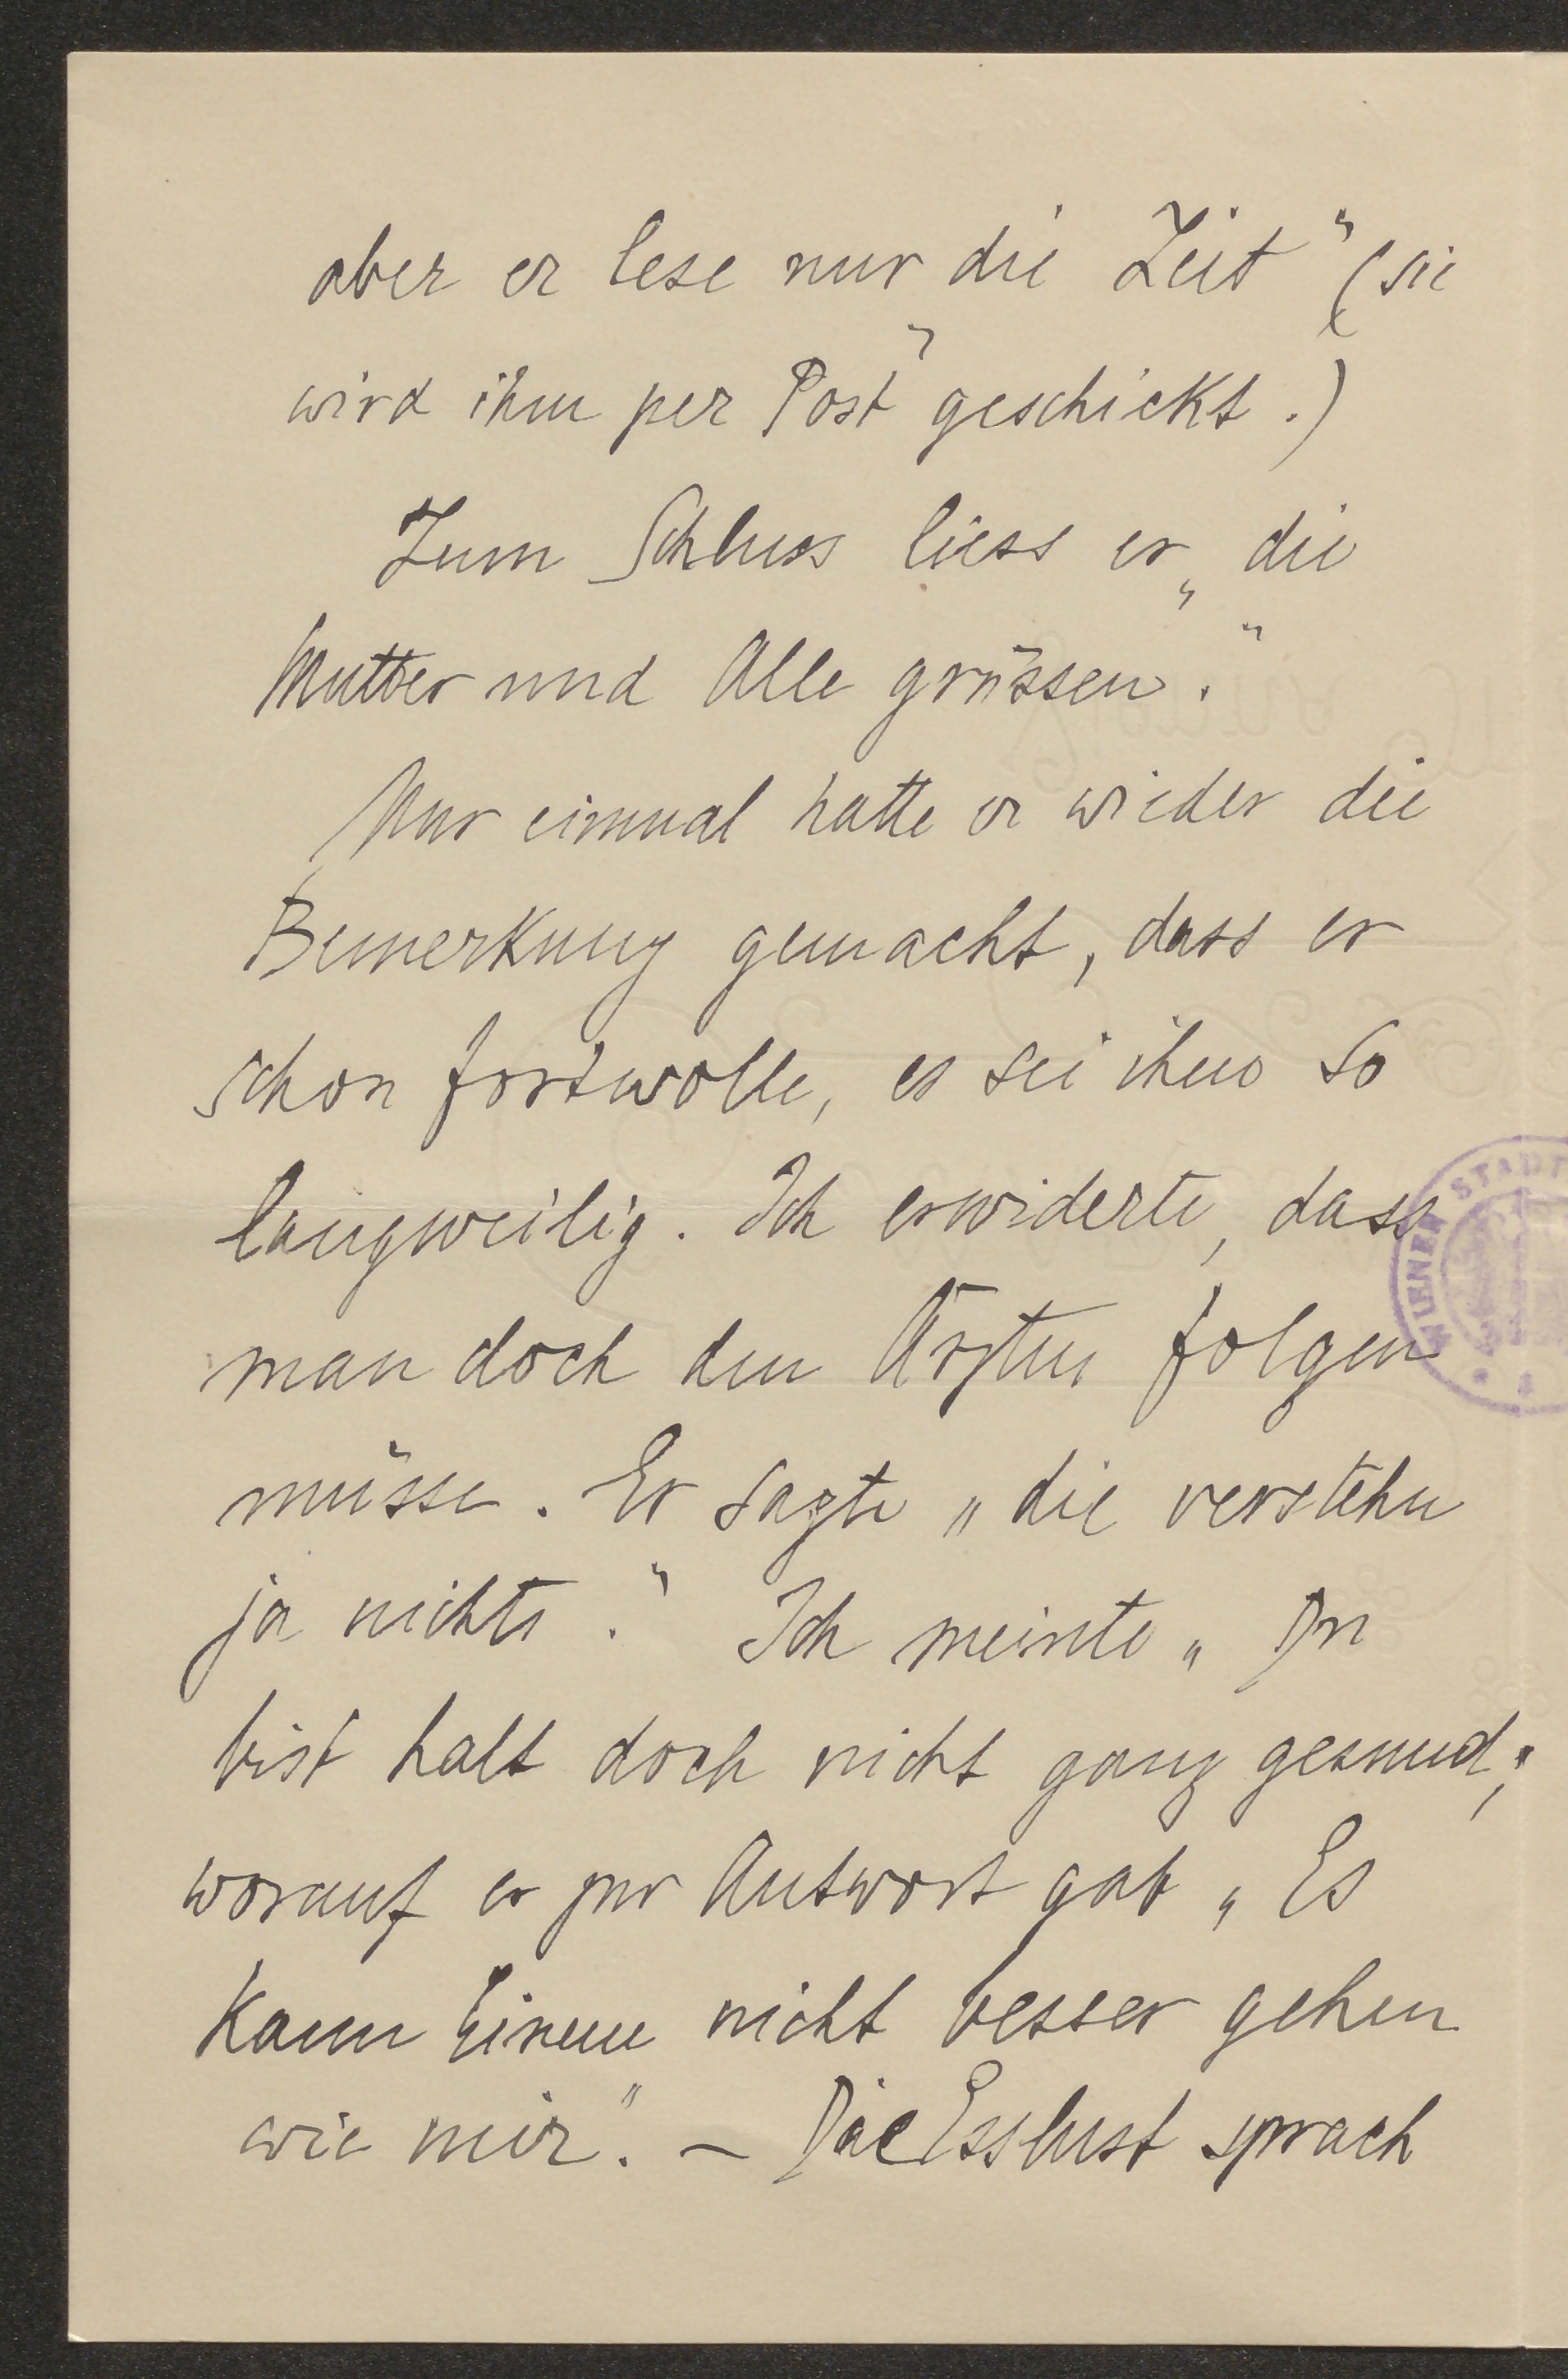 aber er lese nur die Zeit" (sie
wird ihm per Post" geschickt.)
Zum Schluss liess er „die
Mutter und Alle grüssen."
Nur einmal hatte er wieder die
Bemerkung gemacht, dass er
schon fortwolle, es sei ihm so
langweilig. Ich erwiderte, dass
man doch den Ärzten folgen
müsse. Er sagte „die verstehn
ja nichts." Ich meinte „Du
bist halt doch nicht ganz gesund,"
worauf er zur Antwort gab „Es
kann Einem nicht besser gehen
wie mir." – Die Esslust sprach
WIENER STADT